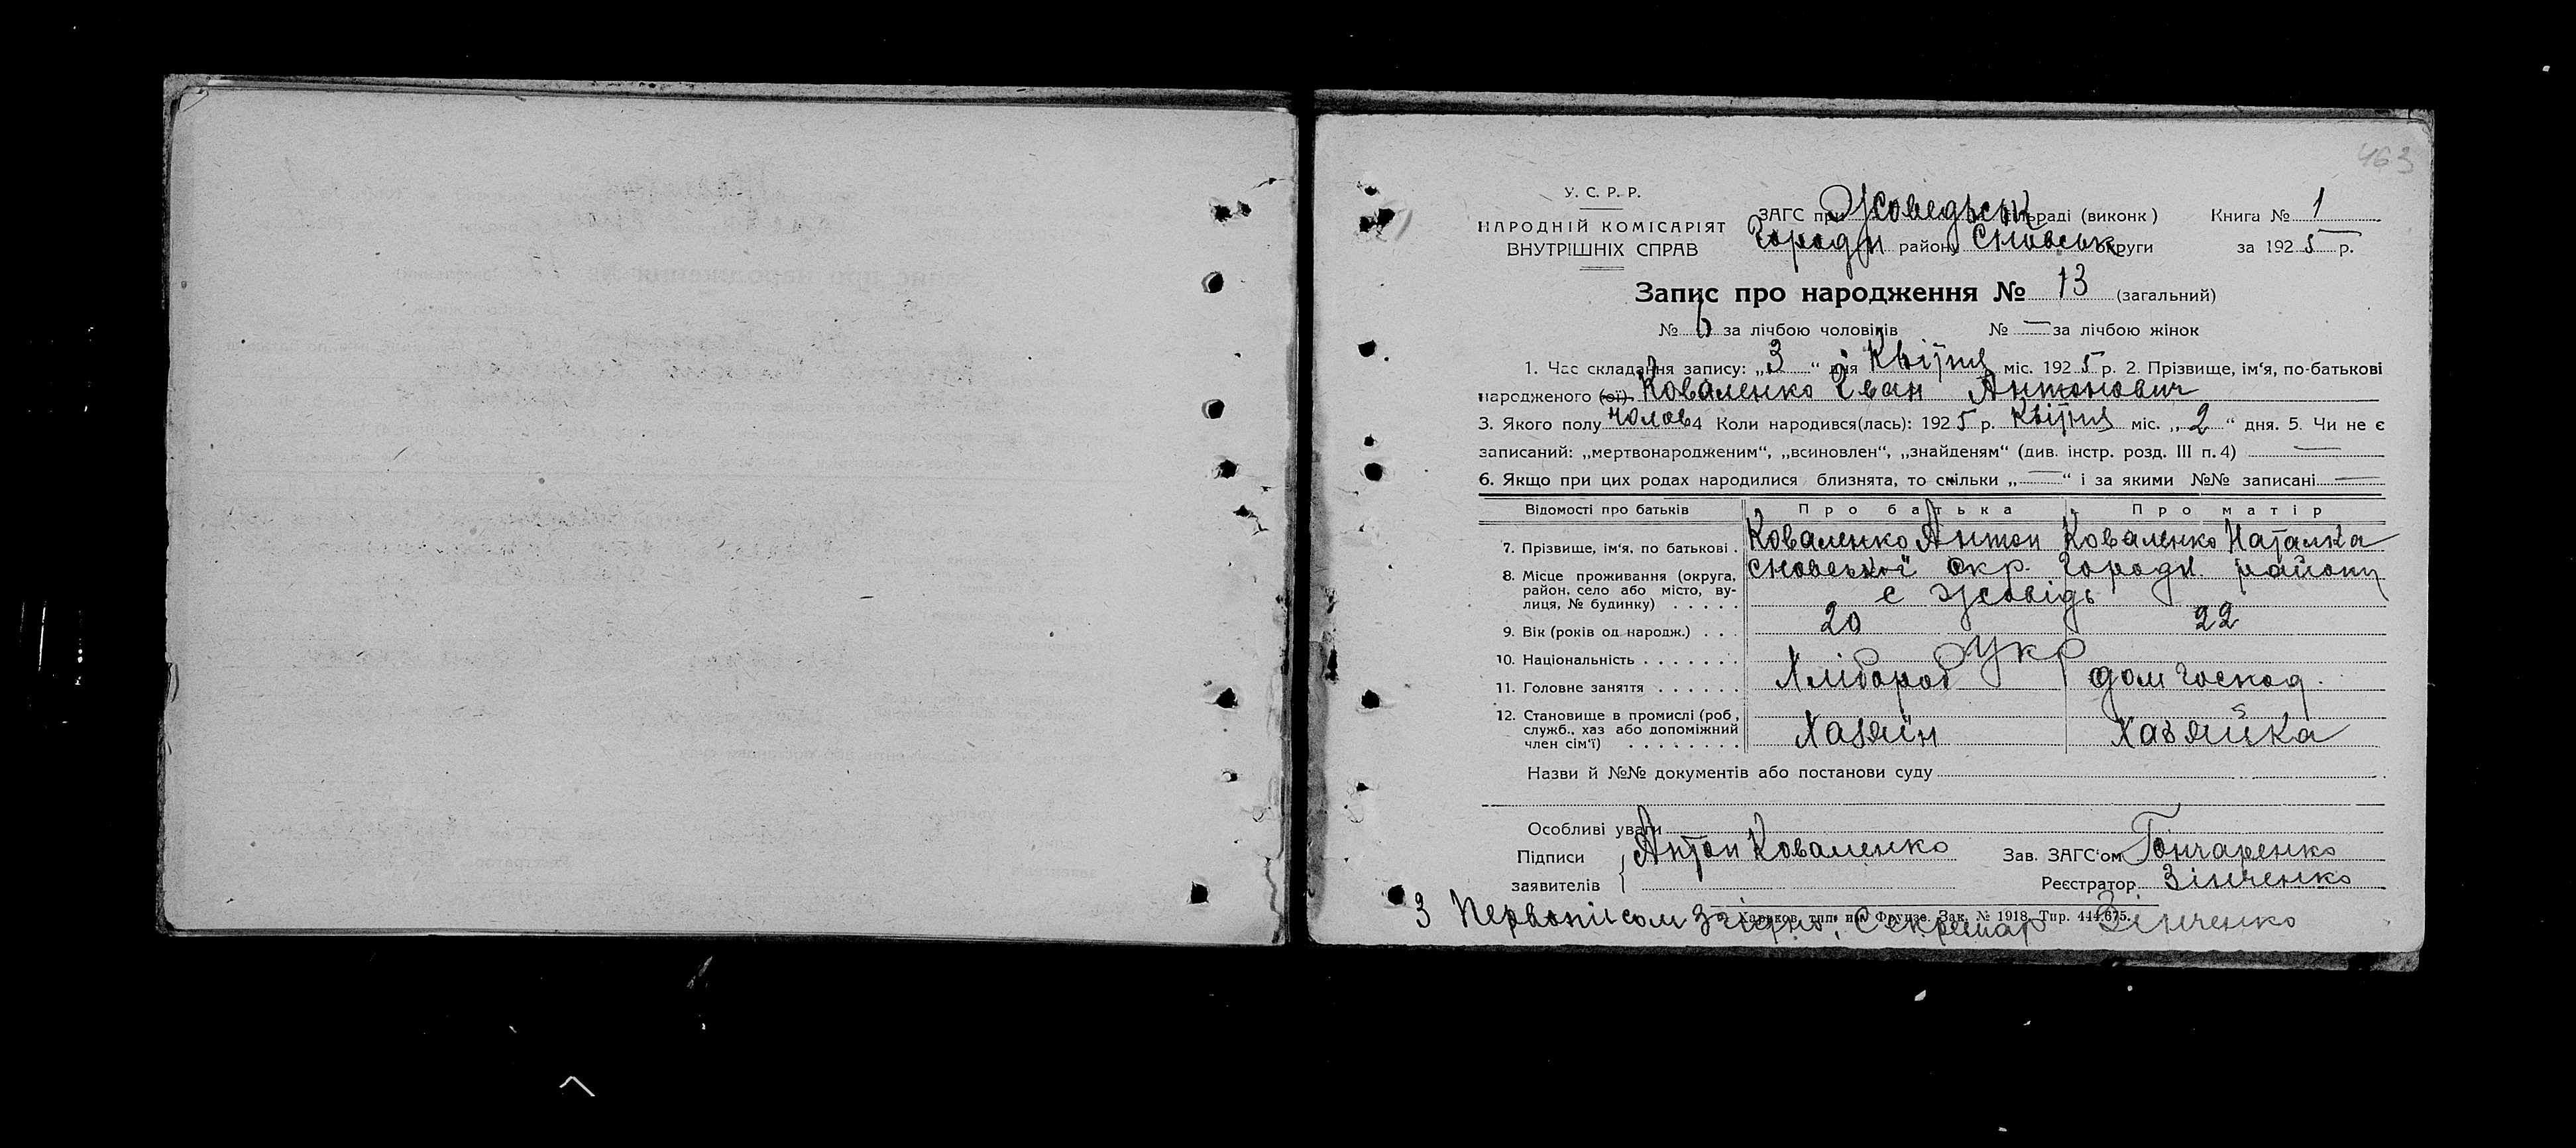 463
У. С. Р. Р.
НАРОДНІЙ КОМІСАРІЯТ
ВНУТРІШНІХ СПРАВ
ЗАГС при Жоведськ сільраді (виконк) Книга № 1
Городн району Сновськ округи за 1925 р.
Запис про народження № 13 (загальний)
№ 6 за лічбою чоловіків № — за лічбою жінок
1. Час складання запису: „3“ дня Квітня міс. 1925 р. 2. Прізвище, ім'я, по-батькові
народженого (ої) Коваленко Іван Антонович
3. Якого полу чолов 4 Коли народився(лась): 1925 р. Квітня міс. „2“ дня. 5. Чи не є
записаний: „мертвонародженим“, „всиновлен“, „знайденям“ (див. інстр. розд. III п. 4) —
6. Якщо при цих родах народилися близнята, то скільки „—“ і за якими №№ записані —
Відомості про батьків Про батька Про матір
7. Прізвище, ім'я, по батькові . Коваленко Антон Коваленко Наталка
8. Місце проживання (округа, Сновської окр. Городн. району
район, село або місто, ву- с Жовідь
лиця, № будинку) . . . . .
9. Вік (років од народж.) . . . 20 22
10. Національність . . . . . . . Укр
11. Головне заняття . . . . . . Хлібороб дом господ.
12. Становище в промислі (роб.,
служб., хаз або допоміжний Хазяїн Хазяйка
член сім'ї) . . . . . . . .
Назви й №№ документів або постанови суду
Особливі уваги
Підписи Антон Коваленко Зав. ЗАГС'ом Гончаренко
заявителів Реєстратор Зінченко
Харьков, тип. им. Фрунзе. Зак. № 1918. Тир. 444.675.
З Первописом згідно, Секретар Зінченко